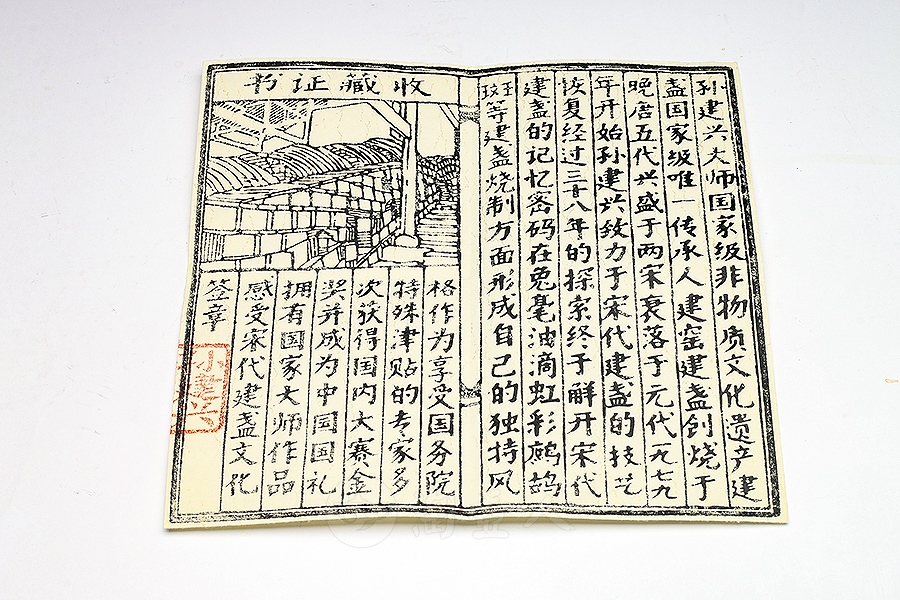 孙建兴大师国家级非物质文化遗产建
盏国家级唯一传承人建窑建盏创烧于
晚唐五代兴盛于两宋衰落于元代一九七九
年开始孙建兴致力于宋代建盏的技艺
恢复经过三十八年的探索终于解开宋代
建盏的记忆密码在兔毫油滴虹彩鹧鸪
斑等建盏烧制方面形成自己的独特风
收藏证书
格作为享受国务院
特殊津贴的专家多
次获得国内大赛金
奖并成为中国国礼
拥有国家大师作品
感受宋代建盏文化
签章
孙建兴